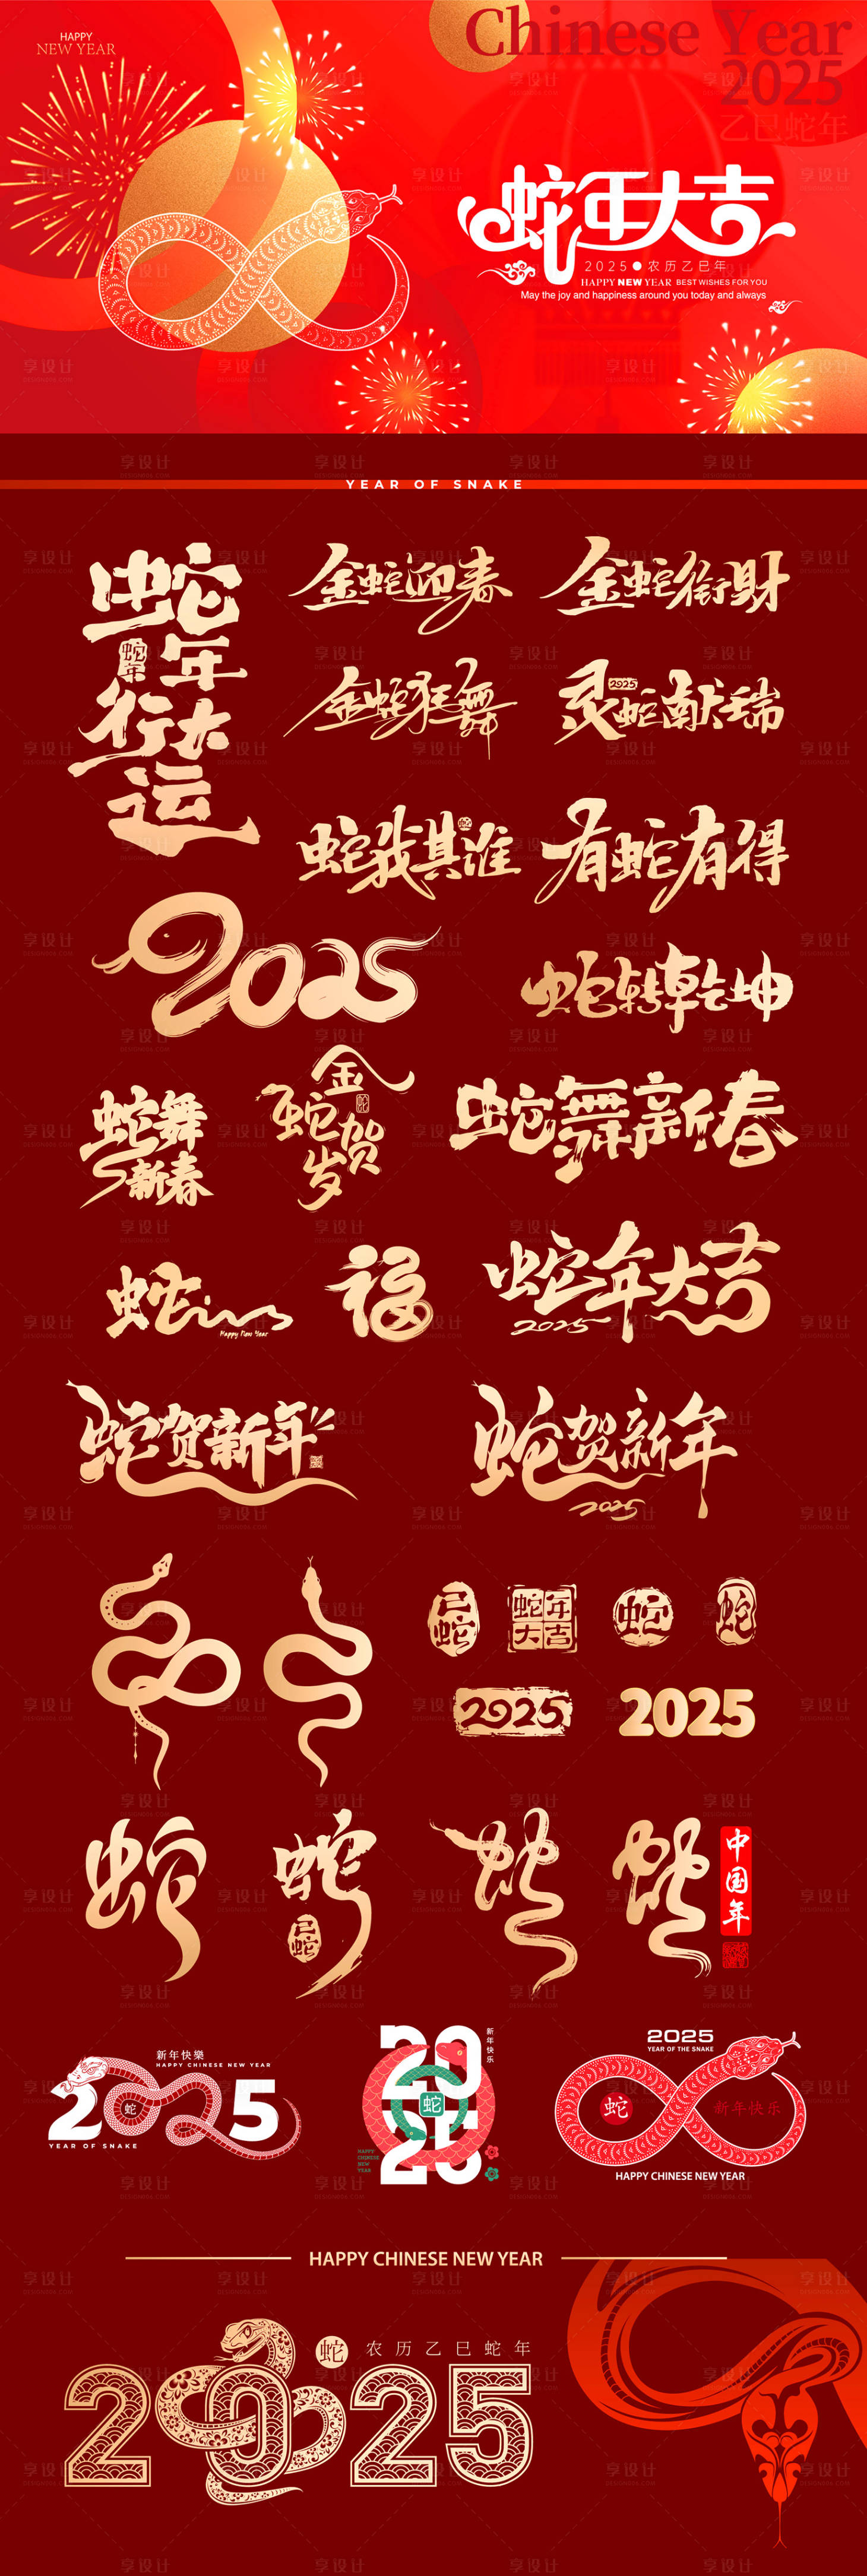 HAPPY
NEW YEAR
Chinese Year
2025
乙巳蛇年
蛇年大吉
2025●农历乙巳年
HAPPY NEW YEAR BEST WISHES FOR YOU
May the joy and happiness around you today and always
YEAR OF SNAKE
蛇年
蛇年
行大运
金蛇迎春
金蛇衔财
金蛇狂舞
灵蛇献瑞
2025
蛇我其谁
有蛇有得
2025
蛇转乾坤
蛇舞
新春
金蛇贺岁
蛇舞新春
蛇
Happy New Year
福
蛇年大吉
2025
蛇贺新年
蛇贺新年
2025
己蛇
蛇年
大吉
蛇
蛇
2025
2025
蛇
蛇
己蛇
蛇
蛇
中国年
新年快樂
HAPPY CHINESE NEW YEAR
2025
蛇
YEAR OF SNAKE
20
25
新年快乐
蛇
HAPPY
CHINESE
NEW
YEAR
2025
YEAR OF THE SNAKE
蛇
新年快乐
HAPPY CHINESE NEW YEAR
HAPPY CHINESE NEW YEAR
蛇 农历乙巳蛇年
2025
享设计
DESIGN006.COM